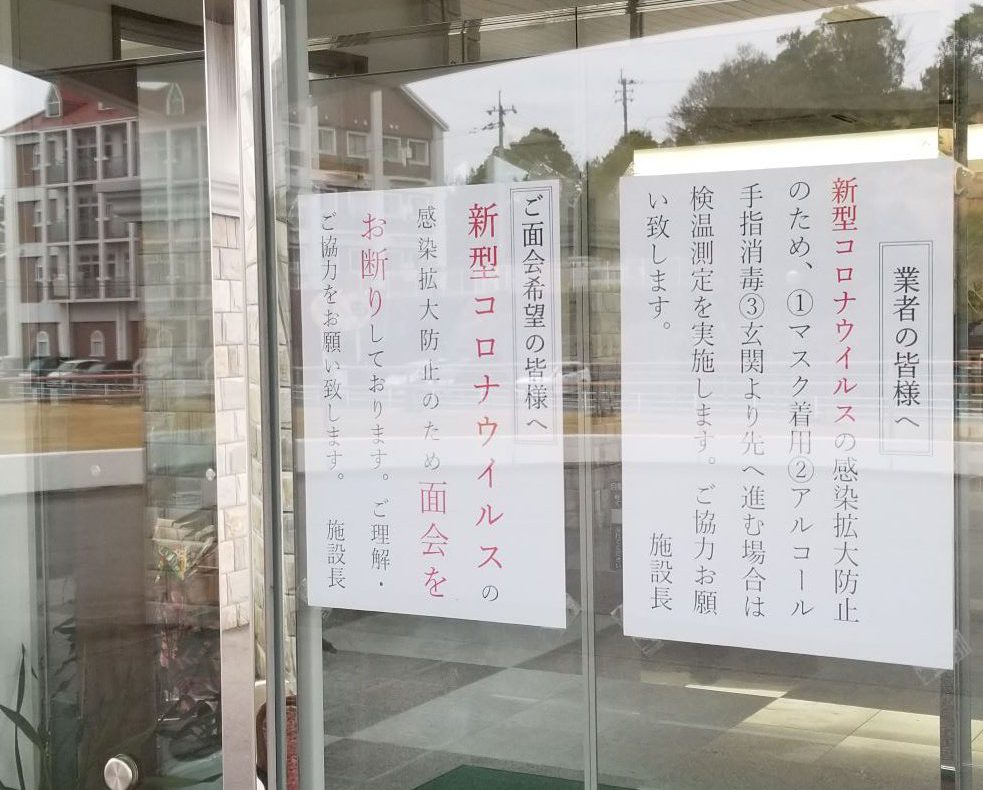 業者の皆様へ
新型コロナウイルスの感染拡大防止
のため、①マスク着用②アルコール
手指消毒③玄関より先へ進む場合は
検温測定を実施します。ご協力お願
い致します。
施設長
ご面会希望の皆様へ
新型コロナウイルスの
感染拡大防止のため面会を
お断りしております。ご理解・
ご協力をお願い致します。
施設長